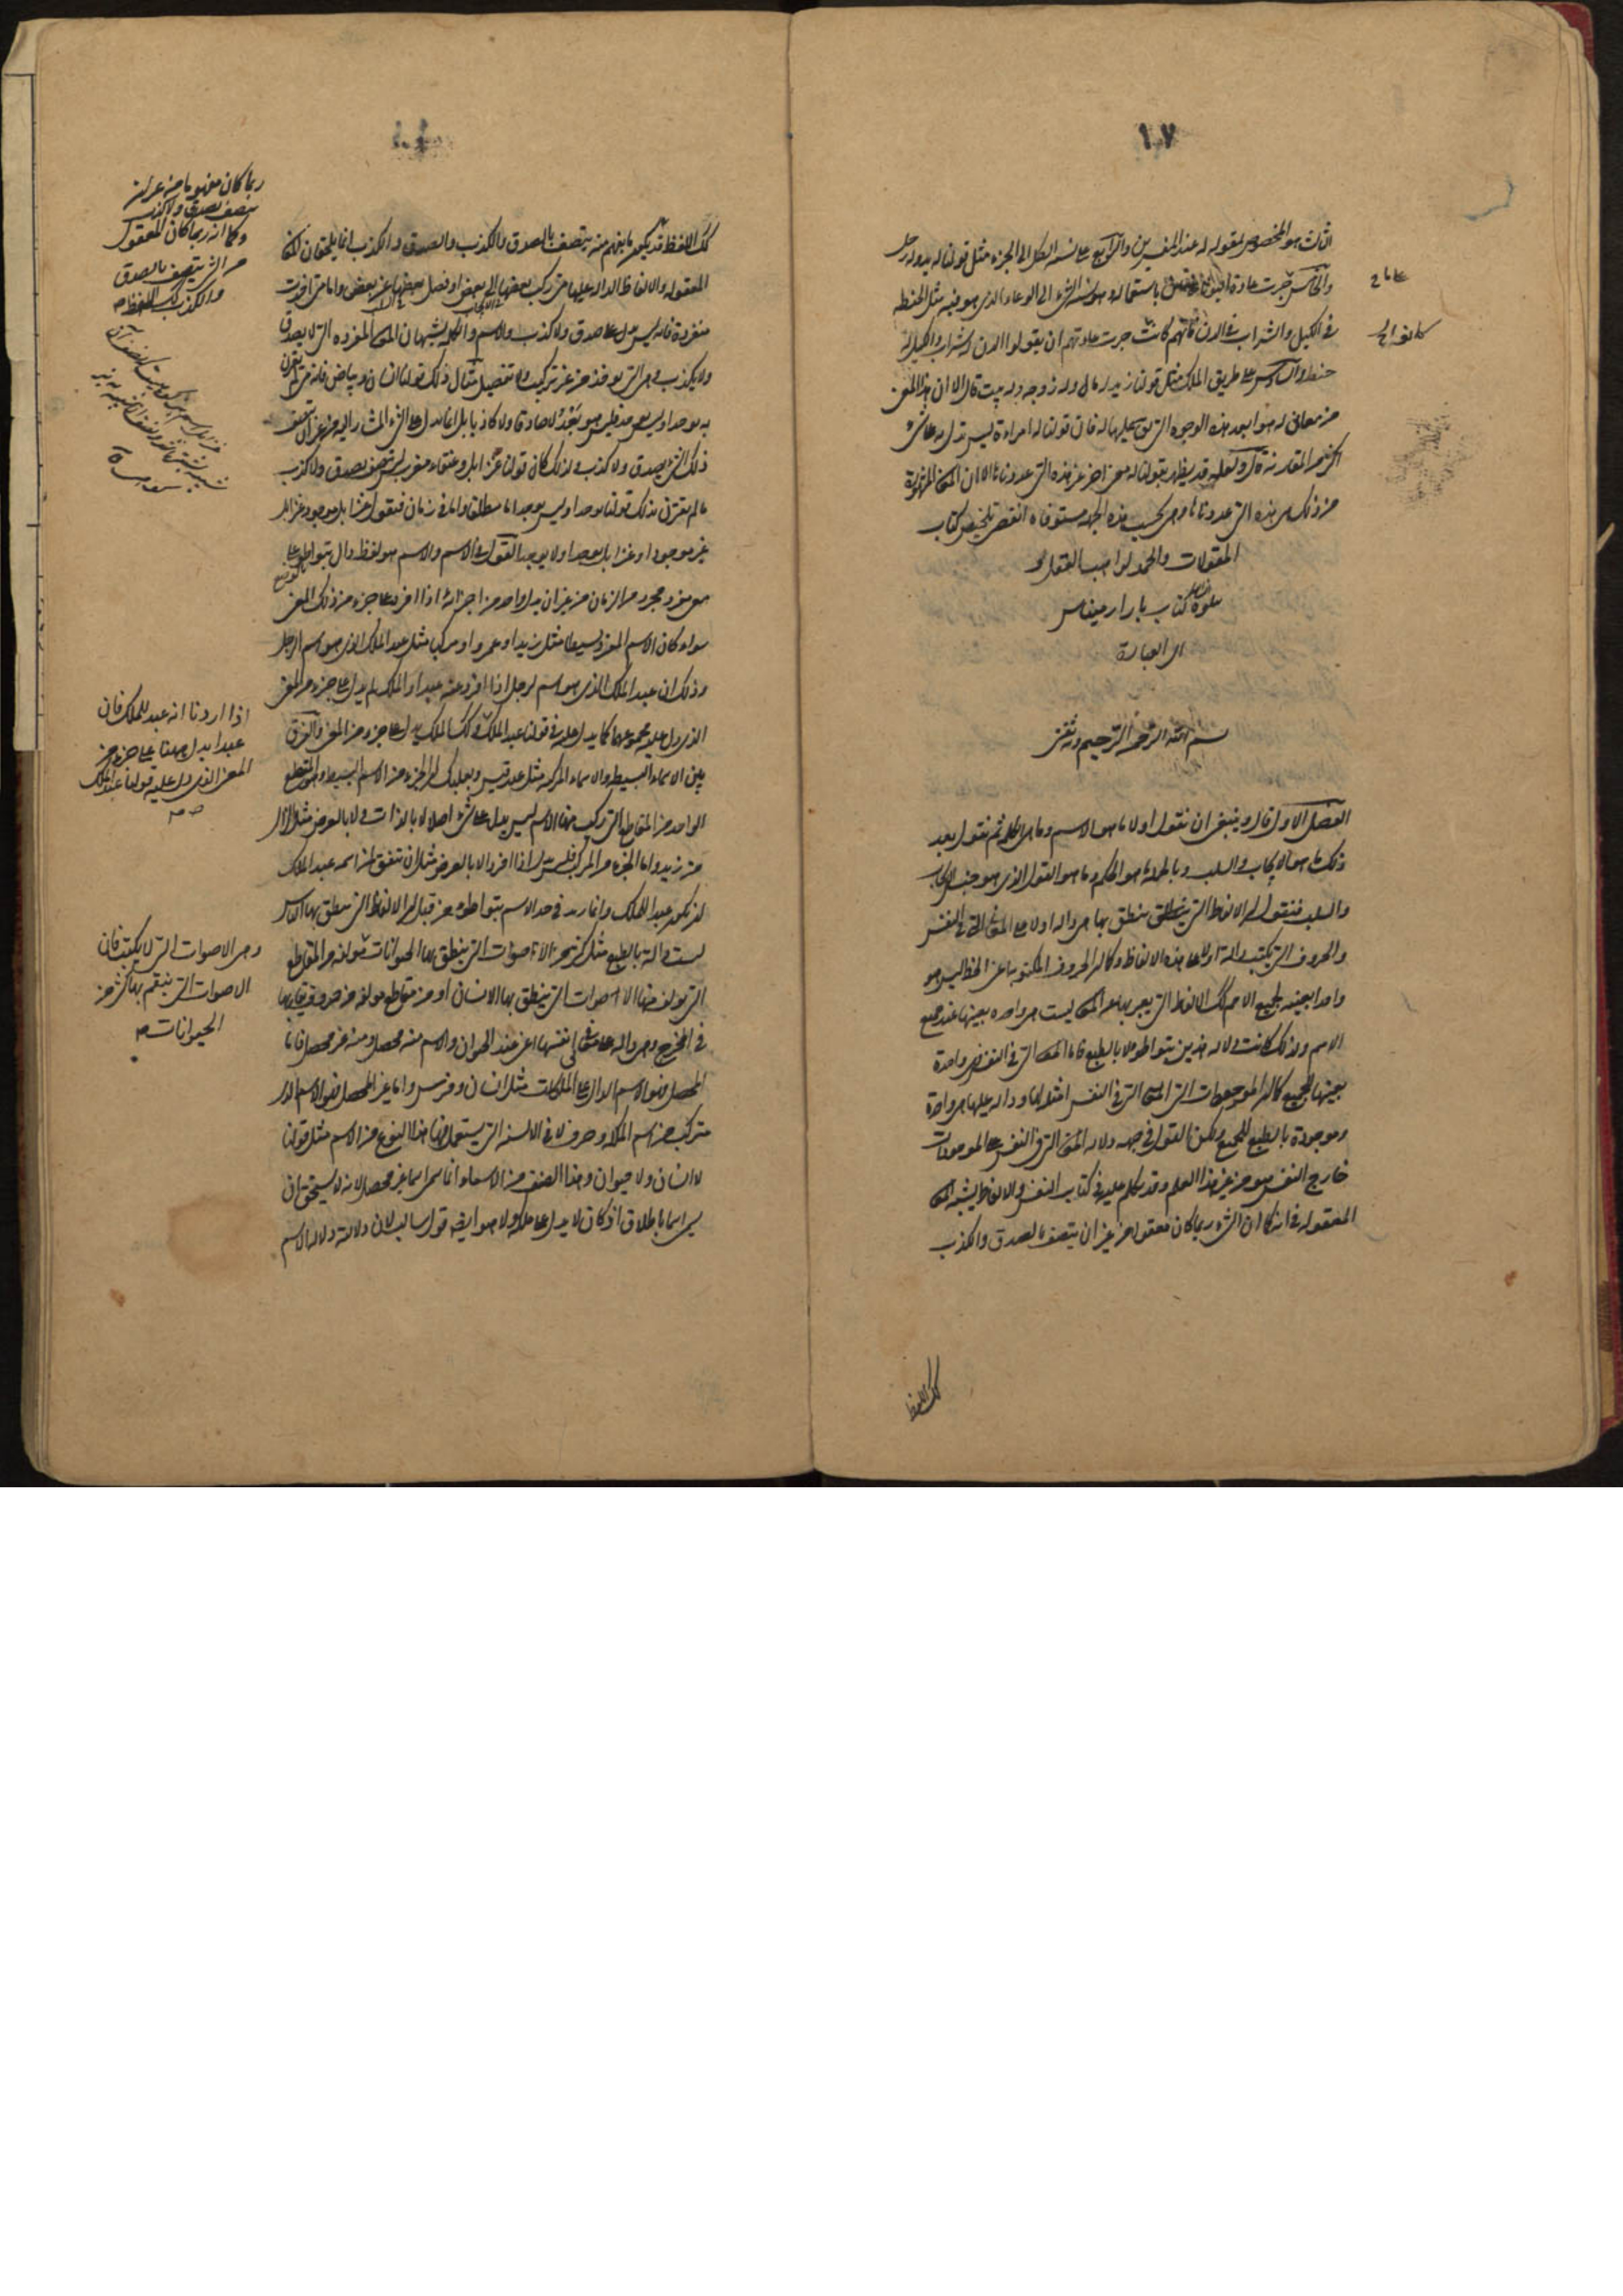 ١٠٧
الثالث هو المخصوص بمقولة له عند المفسرين والرابع على نسبة الكل الى الجزء مثل قولنا له يد وله رجل
والخامس جرت عادة باستعماله وهو نسبة الشيء الى الوعاء الذي هو فيه مثل الحنطة
في الكيل والشراب في الدن فانهم كانت جرت عادتهم ان يقولوا الدن له شراب والكيل له
حنطة والسادس على طريق الملك مثل قولنا زيد له مال وله زوجة وله بيت قال الا ان هذا المعنى
من معاني له هو ابعد هذه الوجوه التي تستعمل لها له فان قولنا له امراة ليس تدل به على شيء
اكثر من المقارنة قال ولعله قد يظهر بقولنا له معنى اخر غير هذه التي عددناها الا ان المعاني المشهورة
من ذلك هي هذه التي عددناها وهي بحسب هذه الجهة مستوفاة انقضى تلخيص كتاب
المقولات والحمد لواهب العقل
يتلوه كتاب بارارمينياس
اي العبارة
بسم الله الرحمن الرحيم وبه ثقتي
الفصل الاول قال وينبغي ان نقول اولا ما هو الاسم وما هي الكلمة ثم نقول بعد
ذلك ما هو الايجاب والسلب وبالجملة ما هو الحكم وما هو القول الذي هو جنس الايجاب
والسلب فنقول ان الالفاظ التي ينطق بها هي دالة اولا على المعاني التي في النفس
والحروف التي تكتب دالة اولا على هذه الالفاظ وكما ان الحروف المكتوبة اعني الخط ليس هو
واحدا بعينه لجميع الامم كك الالفاظ التي يعبر بها عن المعاني ليست هي واحدة بعينها عند جميع
الامم ولذلك كانت دلالة هذين بتواطؤ لا بالطبع فاما المعاني التي في النفس فهي واحدة
بعينها للجميع كما ان الموجودات التي المعاني التي في النفس امثلة لها ودالة عليها هي واحدة
وموجودة بالطبع للجميع ولكن القول في جهة دلالة المعاني التي في النفس على الموجودات
خارج النفس هو من غير هذا العلم وقد تكلم عليه في كتاب النفس والالفاظ يشبه المعاني
المعقولة في انه كما ان الشيء ربما كان معقولا من غير ان يتصف بالصدق والكذب
كك اللفظ
كك اللفظ قد يكون ما يفهم منه يتصف بالصدق والكذب والصدق والكذب انما يلحقان المعاني
المعقولة والالفاظ الدالة عليها متى ركب بعضها الى بعض او فصل بعضها عن بعض واما متى اخذت
مفردة فانه ليس تدل على صدق ولا كذب والاسم والكلمة يشبهان المعاني المفردة التي لا تصدق
ولا تكذب وهي التي توخذ من غير تركيب ولا تفصيل مثال ذلك قولنا انسان وبياض فانه متى لم يقرن
به يوجد او ليس يوجد فليس هو بعد لا صادقا ولا كاذبا بل انما يدل على الشيء المشار اليه من غير ان يتصف
ذلك الشيء بصدق ولا كذب ولذلك كان قولنا عنز ايل وعنقاء مغرب ليس يتصف بصدق ولا كذب
ما لم يقترن بذلك قولنا يوجد او ليس يوجد اما مطلقا واما في زمان فنقول عنز ايل موجود عنز ايل
غير موجود او عنز ايل يوجد او لا يوجد القول في الاسم والاسم هو لفظ دال بتواطؤ على
معنى مفرد مجرد من الزمان من غير ان يدل واحد من اجزائه اذا افرد على جزء من ذلك المعنى
سواء كان الاسم المفرد بسيطا مثل زيد او عمرو او مركبا مثل عبد الملك الذي هو اسم لرجل
وذلك ان عبد الملك الذي هو اسم لرجل اذا افرد عنه عبد او الملك لم يدل على جزء من المعنى
الذي دل عليه مجموعهما كما يدل عليه في قولنا عبد الملك وكك الملك يدل على جزء من المعنى والفرق
بين الاسماء البسيطة والاسماء المركبة مثل عبد قيس وبعلبك ان الجزء من الاسم البسيط وهو المقطع
الواحد من المقاطع التي ركب منها الاسم ليس يدل على شيء اصلا لا بالذات ولا بالعرض مثل الزاي
من زيد واما الجزء من المركب فليس يدل اذا افرد الا بالعرض مثل ان يتفق لمن اسمه عبد الملك
ان يكون عبدا للملك وانما زيد في حد الاسم بتواطؤ من قبل ان الالفاظ التي ينطق بها الناس
ليست دالة بالطبع مثل كثير من الاصوات التي ينطق بها الحيوانات مولفة من المقاطع
التي تولف منها الاصوات التي ينطق بها الانسان او من مقاطع مولفة من حروف تقاربها
في المخرج وهي دالة على معاني في انفسها اعني عند الحيوان والاسم منه محصل ومنه غير محصل فاما
المحصل فهو الاسم الدال على الملكات مثل انسان وفرس واما غير المحصل فهو الاسم الذي
يتركب من اسم الملكة وحرف لا في الالسنة التي يستعمل فيها هذا النوع من الاسم مثل قولنا
لا انسان ولا حيوان وهذا الصنف من الاسماء انما سمي اسما غير محصل لانه لا يستحق ان
يسمى اسما باطلاق اذ كان لا يدل على ملكة ولا هو ايضا قول سالب لان دلالته دلالة الاسم
ربما كان مفهوما من غير ان
يتصف بصدق ولا كذب
وكما انه ربما كان المعقول
من الشيء يتصف بالصدق
والكذب كك اللفظ صح
اذا اردنا انه عبد للملك فان
عبدا يدل ههنا على جزء من
المعنى الذي دل عليه قولنا عبد الملك
صح
وهي الاصوات التي لا تكتب فان
الاصوات التي ينغم بها كثير من
الحيوانات صح